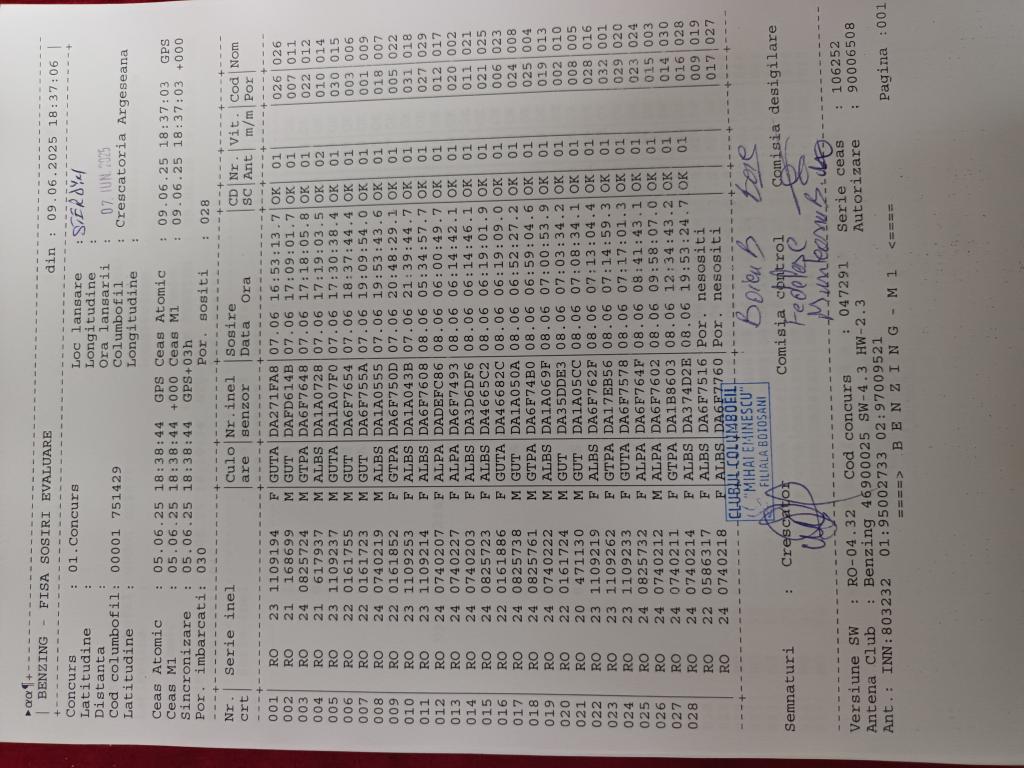 ►αα¶+
| BENZING - FISA SOSIRI EVALUARE din : 09.06.2025 18:37:06 |
Concurs : 01.Concurs Loc lansare :
Latitudine : Longitudine :
Distanta : Ora lansarii : 07 IUN. 2025
Cod columbofil: 00001 751429 Columbofil : Crescatoria Argeseana
Latitudine : Longitudine :
Ceas Atomic : 05.06.25 18:38:44 GPS Ceas Atomic : 09.06.25 18:37:03 GPS
Ceas M1 : 05.06.25 18:38:44 +000 Ceas M1 : 09.06.25 18:37:03 +000
Sincronizare : 05.06.25 18:38:44 GPS+03h
Por. imbarcati: 030 Por. sositi : 028
Nr.| Serie inel |Culo|Nr.inel |Sosire |CD|Nr. |Vit.|Cod|Nom
crt |are |senzor |Data Ora |SC|Ant |m/m |Por
001 | RO 23 1109194 F|GUTA|DA271FA8|07.06 16:53:13.7|OK| 01 | |026|026
002 | RO 21 168699 M|GUT |DAFD614B|07.06 17:09:01.7|OK| 01 | |007|011
003 | RO 24 0825724 M|GTPA|DA6F7648|07.06 17:18:05.8|OK| 01 | |022|012
004 | RO 21 617937 M|ALBS|DA1A0728|07.06 17:19:03.5|OK| 02 | |010|014
005 | RO 23 1109237 M|GUTA|DA1A07F0|07.06 17:30:38.4|OK| 01 | |030|015
006 | RO 22 0161755 M|GUT |DA6F7654|07.06 18:37:44.4|OK| 01 | |003|006
007 | RO 22 0161723 M|GUT |DA6F755A|07.06 19:09:54.0|OK| 01 | |001|009
008 | RO 24 0740219 M|ALBS|DA1A0555|07.06 19:53:43.6|OK| 01 | |018|007
009 | RO 22 0161852 F|GTPA|DA6F750D|07.06 20:48:29.1|OK| 01 | |005|022
010 | RO 23 1109253 F|ALBS|DA1A043B|07.06 21:39:44.7|OK| 01 | |031|018
011 | RO 23 1109214 F|ALBS|DA6F7608|08.06 05:34:57.7|OK| 01 | |027|029
012 | RO 24 0740207 F|ALPA|DADEFC86|08.06 06:00:49.7|OK| 01 | |012|017
013 | RO 24 0740227 F|ALPA|DA6F7493|08.06 06:14:42.1|OK| 01 | |020|002
014 | RO 24 0740203 F|ALBS|DA3D6DF6|08.06 06:14:46.1|OK| 01 | |011|021
015 | RO 24 0825723 F|ALBS|DA4665C2|08.06 06:19:01.9|OK| 01 | |021|025
016 | RO 22 0161886 F|GUTA|DA46682C|08.06 06:19:09.0|OK| 01 | |006|023
017 | RO 24 0825738 M|GUT |DA1A050A|08.06 06:52:27.2|OK| 01 | |024|008
018 | RO 24 0825761 M|GTPA|DA6F74B0|08.06 06:59:04.6|OK| 01 | |025|004
019 | RO 24 0740222 M|ALBS|DA1A069F|08.06 07:00:53.9|OK| 01 | |019|013
020 | RO 22 0161724 M|GUT |DA35DDE3|08.06 07:03:34.2|OK| 01 | |002|010
021 | RO 20 471130 M|GUT |DA1A05CC|08.06 07:08:34.1|OK| 01 | |008|005
022 | RO 23 1109219 F|ALBS|DA6F762F|08.06 07:13:04.4|OK| 01 | |028|016
023 | RO 23 1109262 F|GTPA|DA17EB56|08.06 07:14:59.3|OK| 01 | |032|001
024 | RO 23 1109233 F|GUTA|DA6F7578|08.06 07:17:01.3|OK| 01 | |029|020
025 | RO 24 0825732 F|ALBS|DA6F764F|08.06 08:41:43.1|OK| 01 | |023|024
026 | RO 24 0740212 M|ALPA|DA6F7602|08.06 09:58:07.0|OK| 01 | |015|003
027 | RO 24 0740211 F|GTPA|DA1B8603|08.06 12:34:43.2|OK| 01 | |014|030
028 | RO 24 0740214 F|ALBS|DA374D2E|08.06 19:53:24.7|OK| 01 | |016|028
RO 22 0586317 F|ALBS|DA6F7516|Por. nesositi |009|019
RO 24 0740218 F|ALBS|DA6F7760|Por. nesositi |017|027
CLUBUL COLUMBOFIL
"MIHAI EMINESCU"
FILIALA BOTOSANI
Semnaturi : Crescator Comisia control Comisia desigilare
Versiune SW : RO-04.32 Cod concurs : 047291 Serie ceas : 106252
Antena Club : Benzing 46900025 SW-4.3 HW-2.3 Autorizare : 90006508
Ant.: INN:803232 01:95002733 02:97009521
====> B E N Z I N G - M 1 <==== Pagina :001